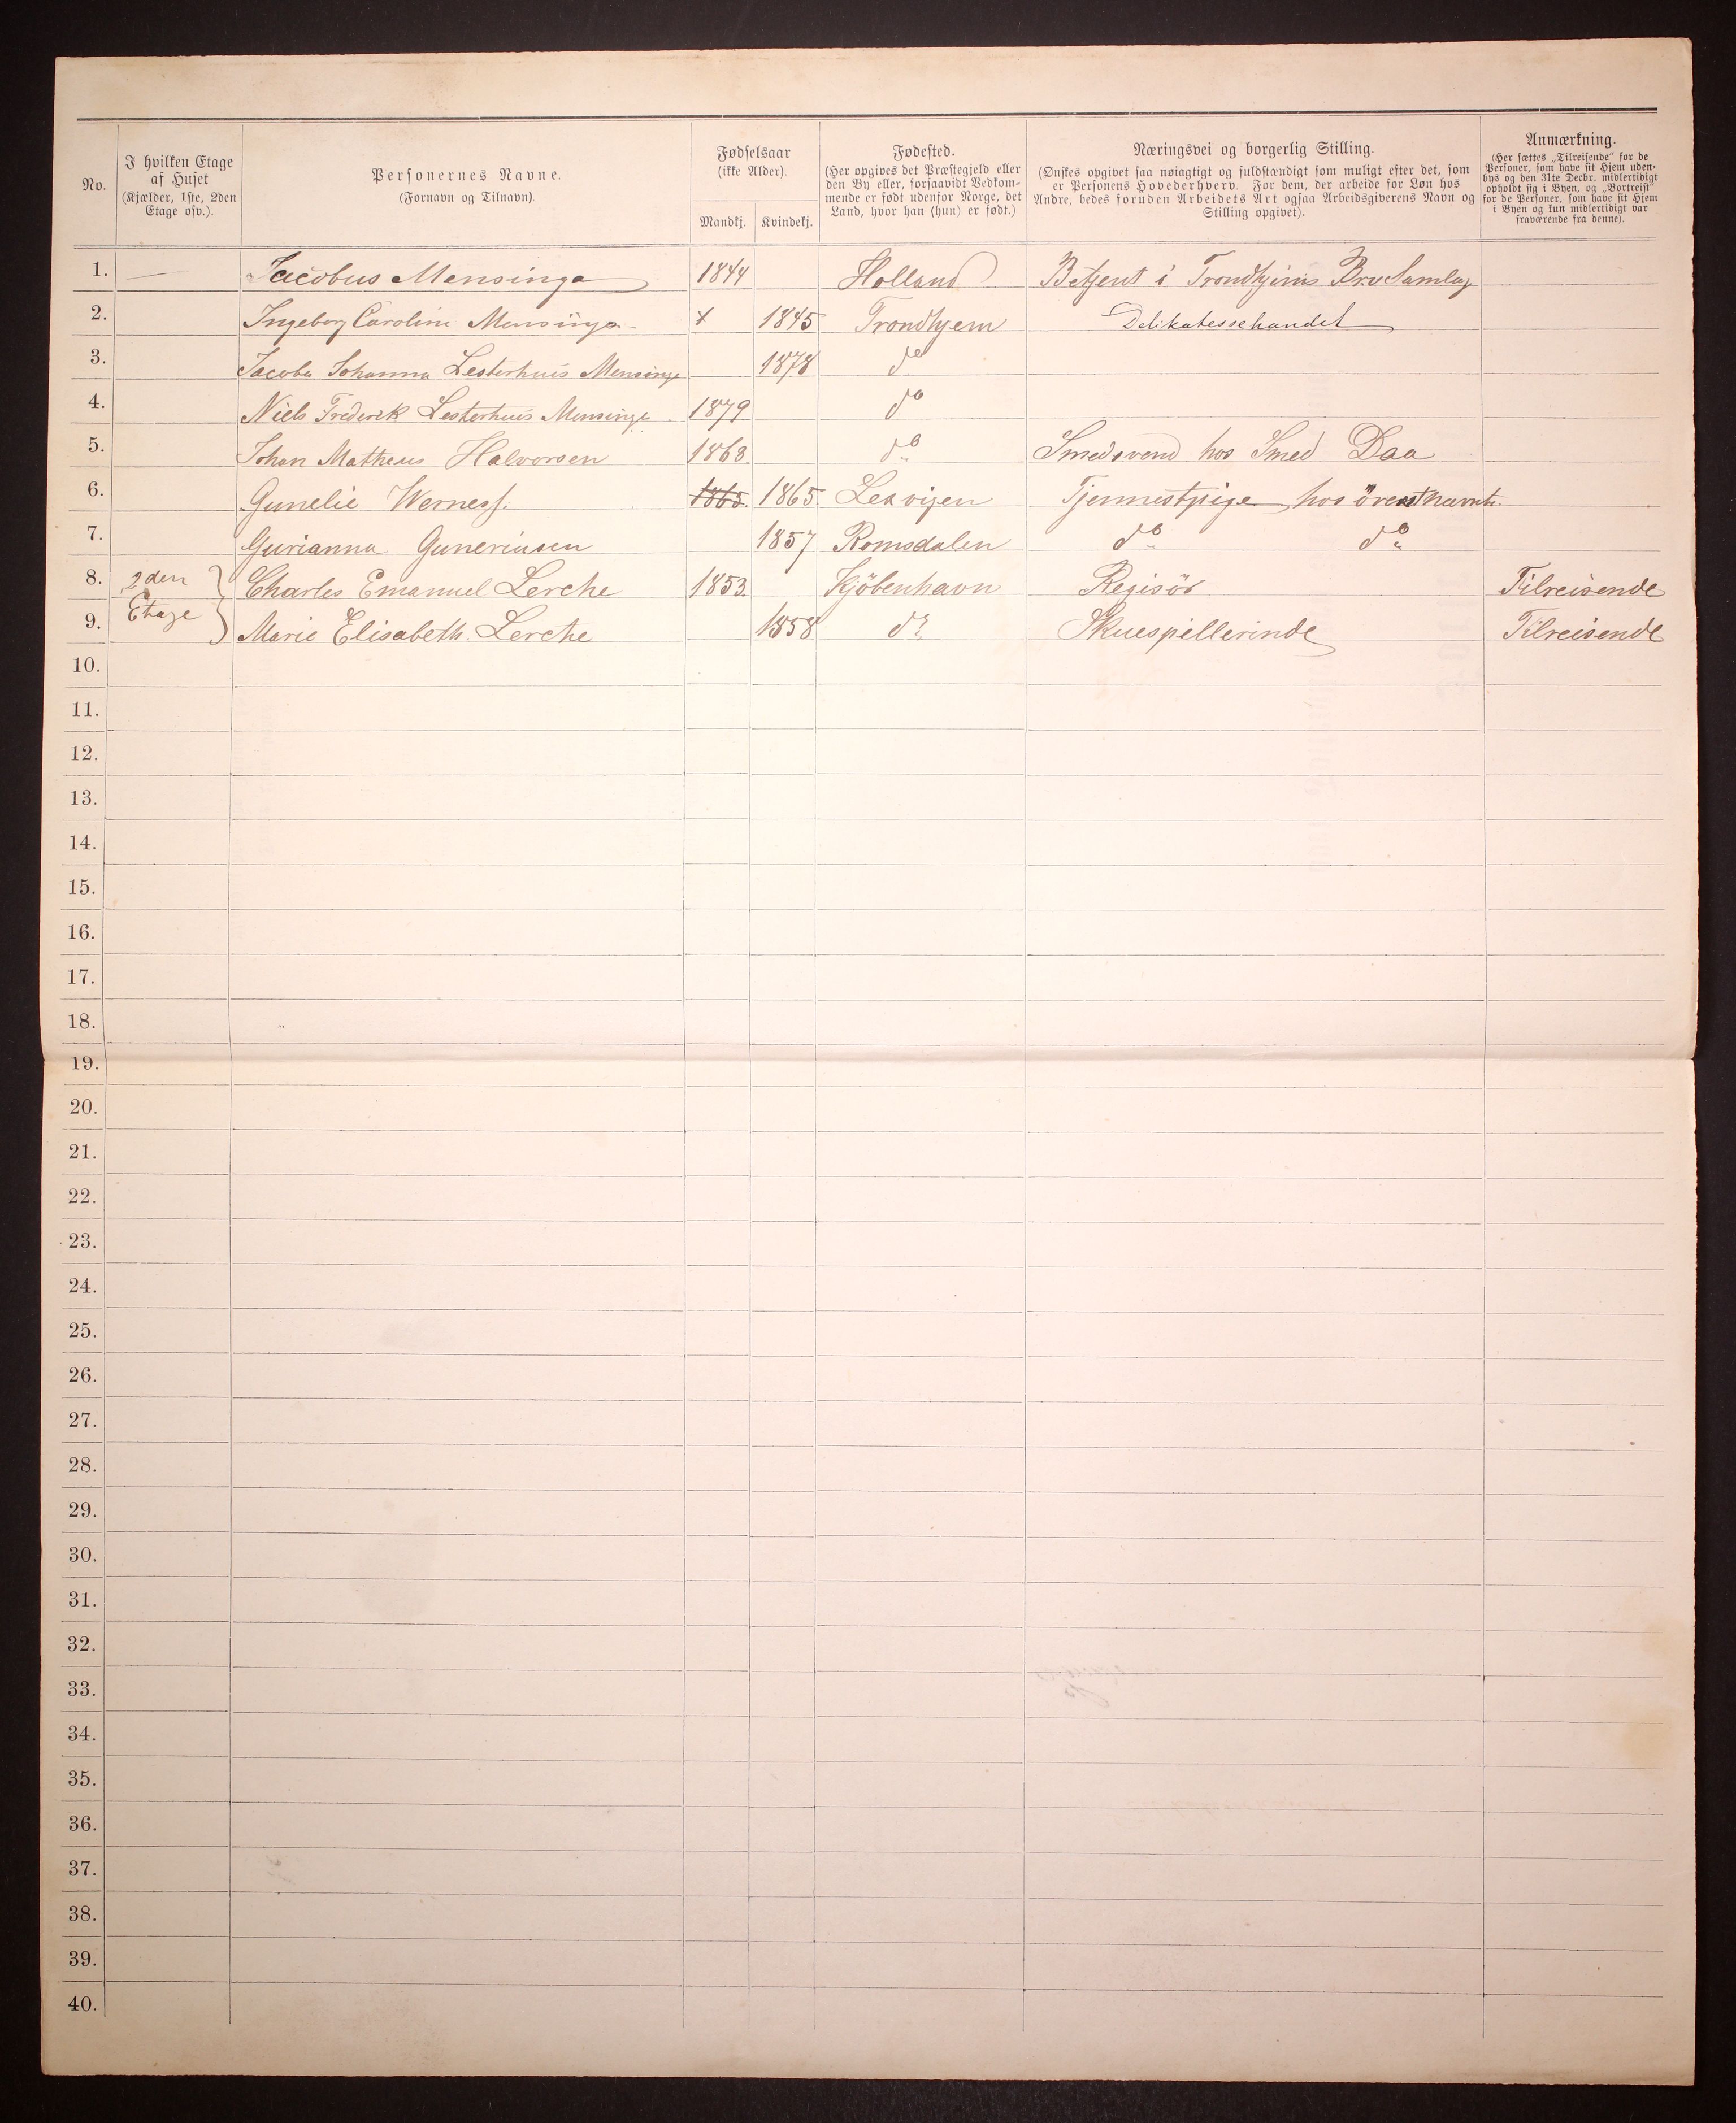 No.
I hvilken Etage
af Huset
(Kjælder, 1ste, 2den
Etage osv.).
Personernes Navne.
(Fornavn og Tilnavn).
Fødselsaar
(ikke Alder).
Mandkj. Kvindekj.
Fødested.
(Her opgives det Præstegjeld eller
den By eller, forsaavidt Vedkom-
mende er født udenfor Norge, det
Land, hvor han (hun) er født.)
Næringsvei og borgerlig Stilling.
(Ønskes opgivet saa nøiagtigt og fuldstændigt som muligt efter det, som
er Personens Hovederhverv. For dem, der arbeide for Løn hos
Andre, bedes foruden Arbeidets Art ogsaa Arbeidsgiverens Navn og
Stilling opgivet).
Anmærkning.
(Her sættes „Tilreisende“ for de
Personer, som have sit Hjem uden-
bys og den 31te Decbr. midlertidigt
opholdt sig i Byen, og „Bortreist“
for de Personer, som have sit Hjem
i Byen og kun midlertidigt var
fraværende fra denne).
1. — Jacobus Mensinga 1844 Holland Betjent i Trondhjems Br.v Samlag
2. Ingeborg Caroline Mensinga x 1845 Trondhjem Delikatessehandel
3. Jacoba Johanna Lesterhuis Mensinga 1878 do
4. Niels Frederik Lesterhuis Mensinga 1879 do
5. Johan Matheus Halvorsen 1863 do Smedsvend hos Smed Daa
6. Gunelie Werness. 1865. 1865. Lexvigen Tjenestpige hos överstnævnte.
7. Gurianna Guneriusen 1857 Romsdalen do do
8. 2den Charles Emanuel Lerche 1853. Kjöbenhavn Regisör Tilreisende
9. Etage Marie Elisabeth. Lerche 1858 do Skuespillerinde Tilreisende
10.
11.
12.
13.
14.
15.
16.
17.
18.
19.
20.
21.
22.
23.
24.
25.
26.
27.
28.
29.
30.
31.
32.
33.
34.
35.
36.
37.
38.
39.
40.